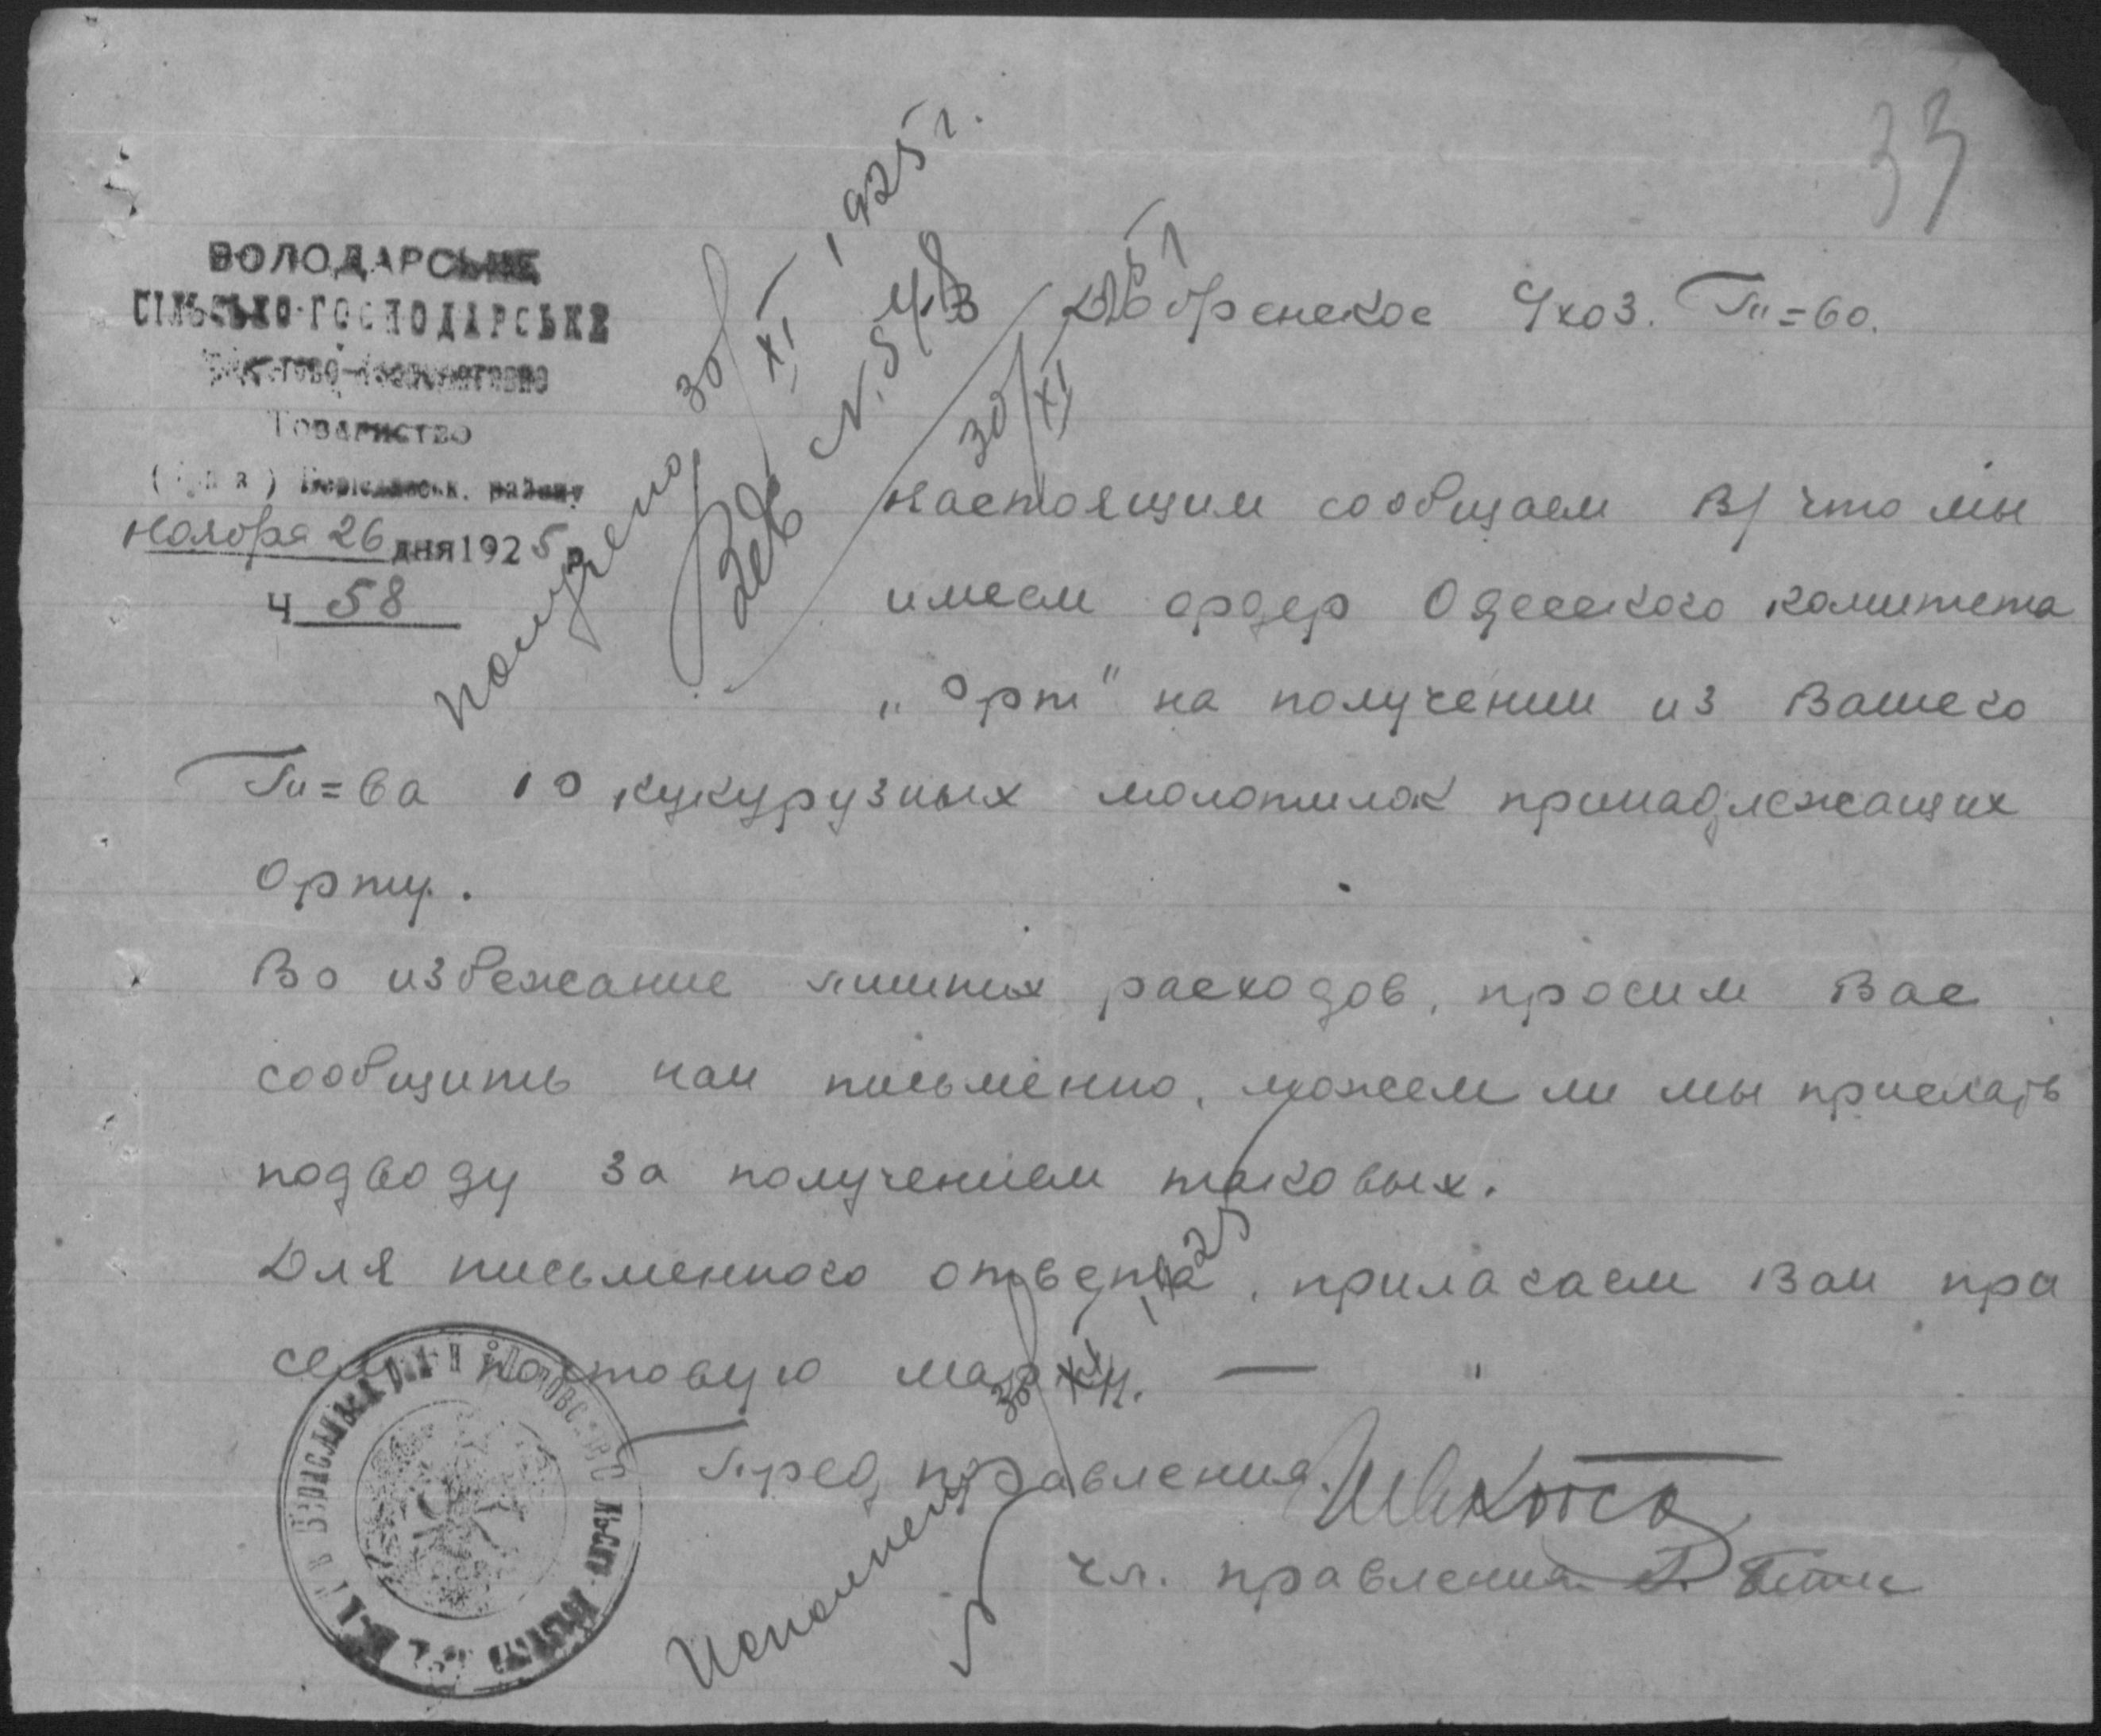 33
ВОЛОДАРСЬКЕ
СІЛЬСЬКО-ГОСПОДАРСЬКЕ
Товариство
району
Ноября 26 дня 1925 р.
Ч 58
Получено 30/XI 1925 г.
N. 543
30/XI
С/хоз. Т-во.
Настоящим сообщаем В/ что мы
имеем ордер Одесского комитета
„Орт" на получении из Вашего
Т-ва 10 кукурузных молотилок принадлежащих
Орту.
Во избежание лишних расходов, просим Вас
сообщить нам письменно, можем ли мы прислать
подводу за получением таковых.
Для письменного ответа, прилагаем Вам при
сем почтовую марку. —
Пред правления
чл. правления
Исполнено 30/XI 1925